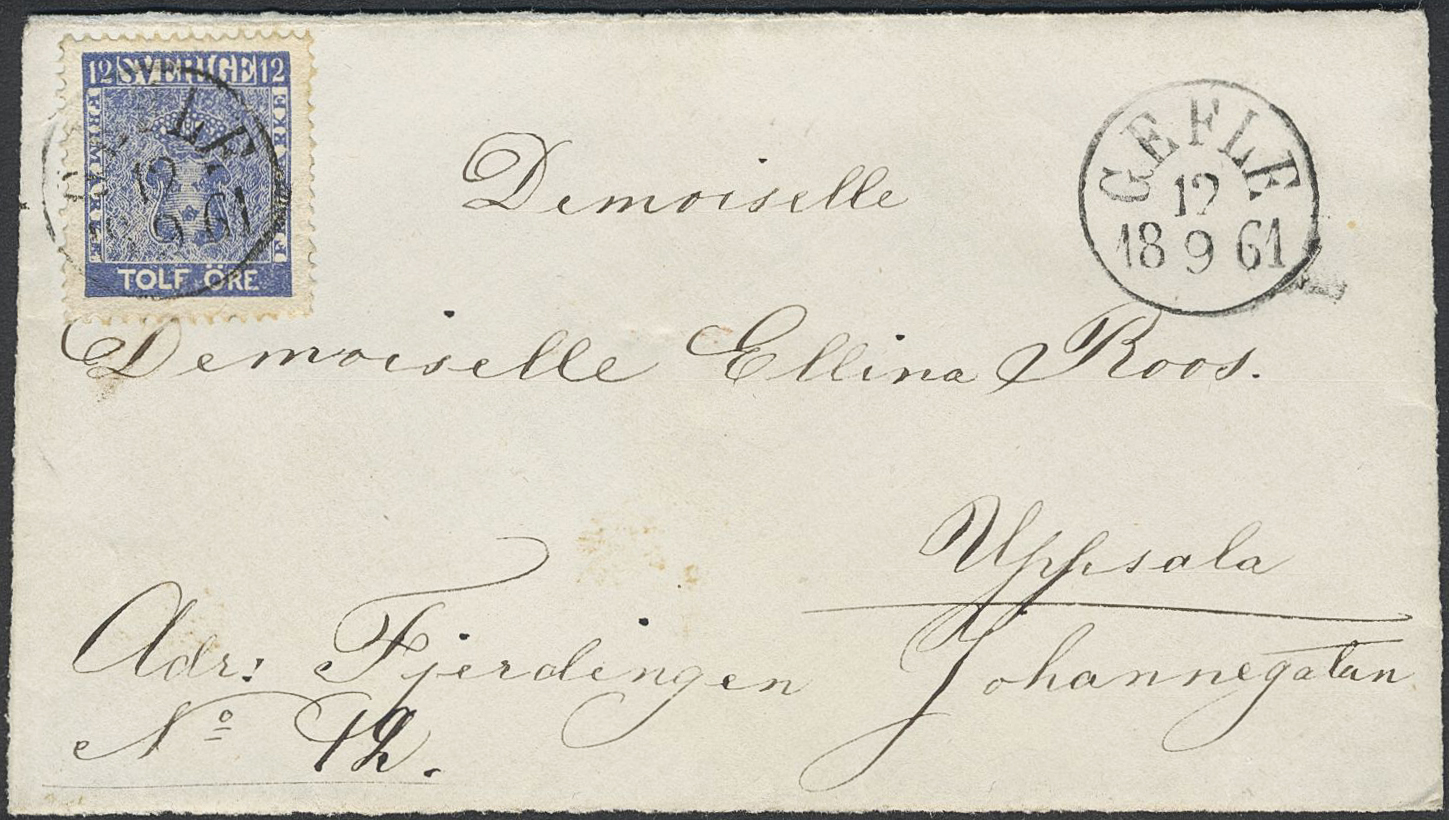 12 SVERIGE 12
FRIMÄRKE
FRIMÄRKE
TOLF ÖRE
GEFLE
12
18 9 61
GEFLE
12
18 9 61
Demoiselle
Demoiselle Ellina Roos.
Uppsala
Adr: Fjerdingen Johannegatan
No 12.